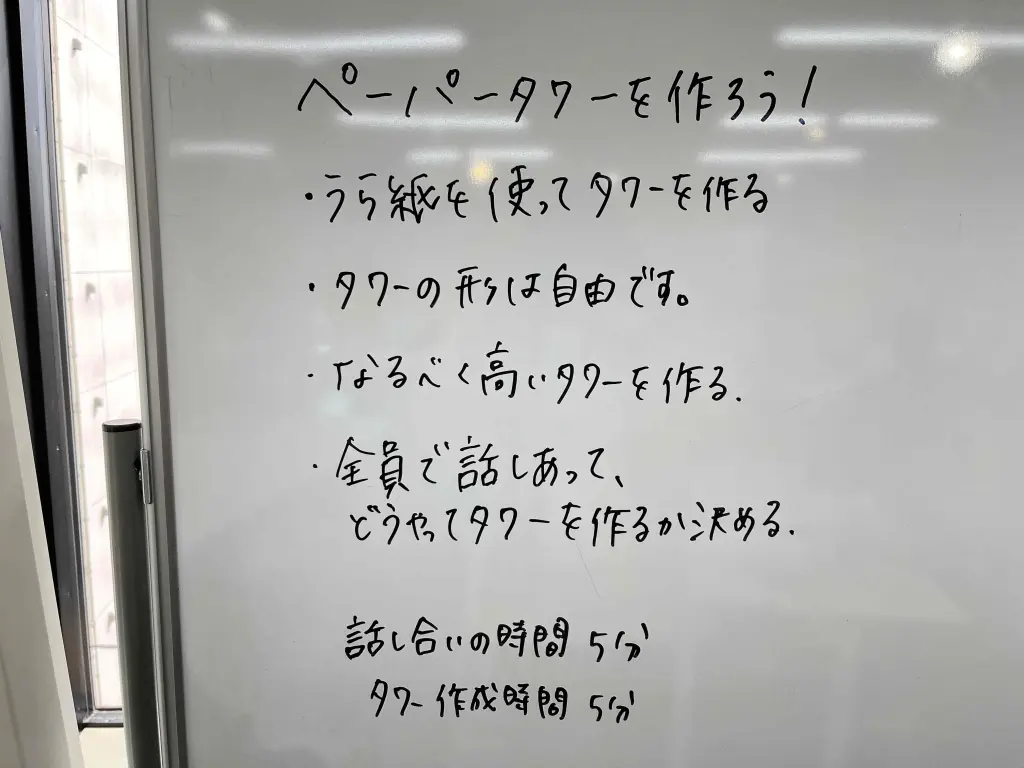 ペーパータワーを作ろう!
・うら紙を使ってタワーを作る
・タワーの形は自由です。
・なるべく高いタワーを作る.
・全員で話しあって、
どうやってタワーを作るか決める.
話し合いの時間 5分
タワー作成時間 5分